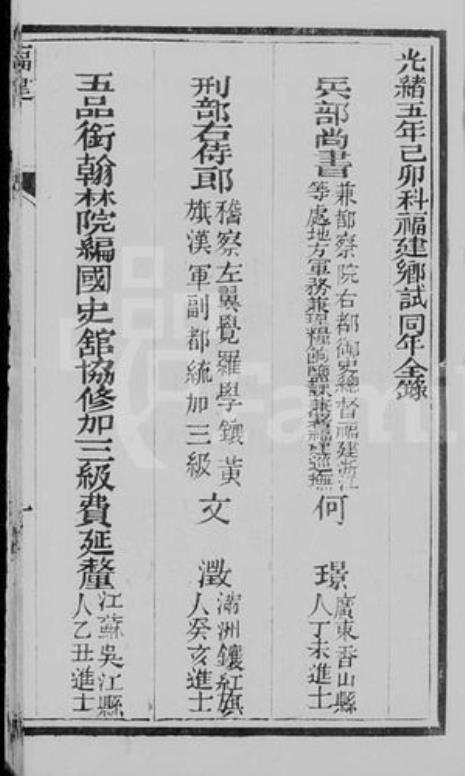 光緒五年己卯科福建鄉試同年全錄
兵部尚書
兼都察院右都御史總督福建浙江
等處地方軍務兼理糧餉鹽課兼署福建巡撫
何璟
廣東香山縣
人丁未進士
刑部右侍郎
稽察左翼覺羅學鑲黃
旗漢軍副都統加三級
文澂
滿洲鑲紅旗
人癸亥進士
五品銜翰林院編國史館協修加三級費延釐
江蘇吳江縣
人乙丑進士
福建
一